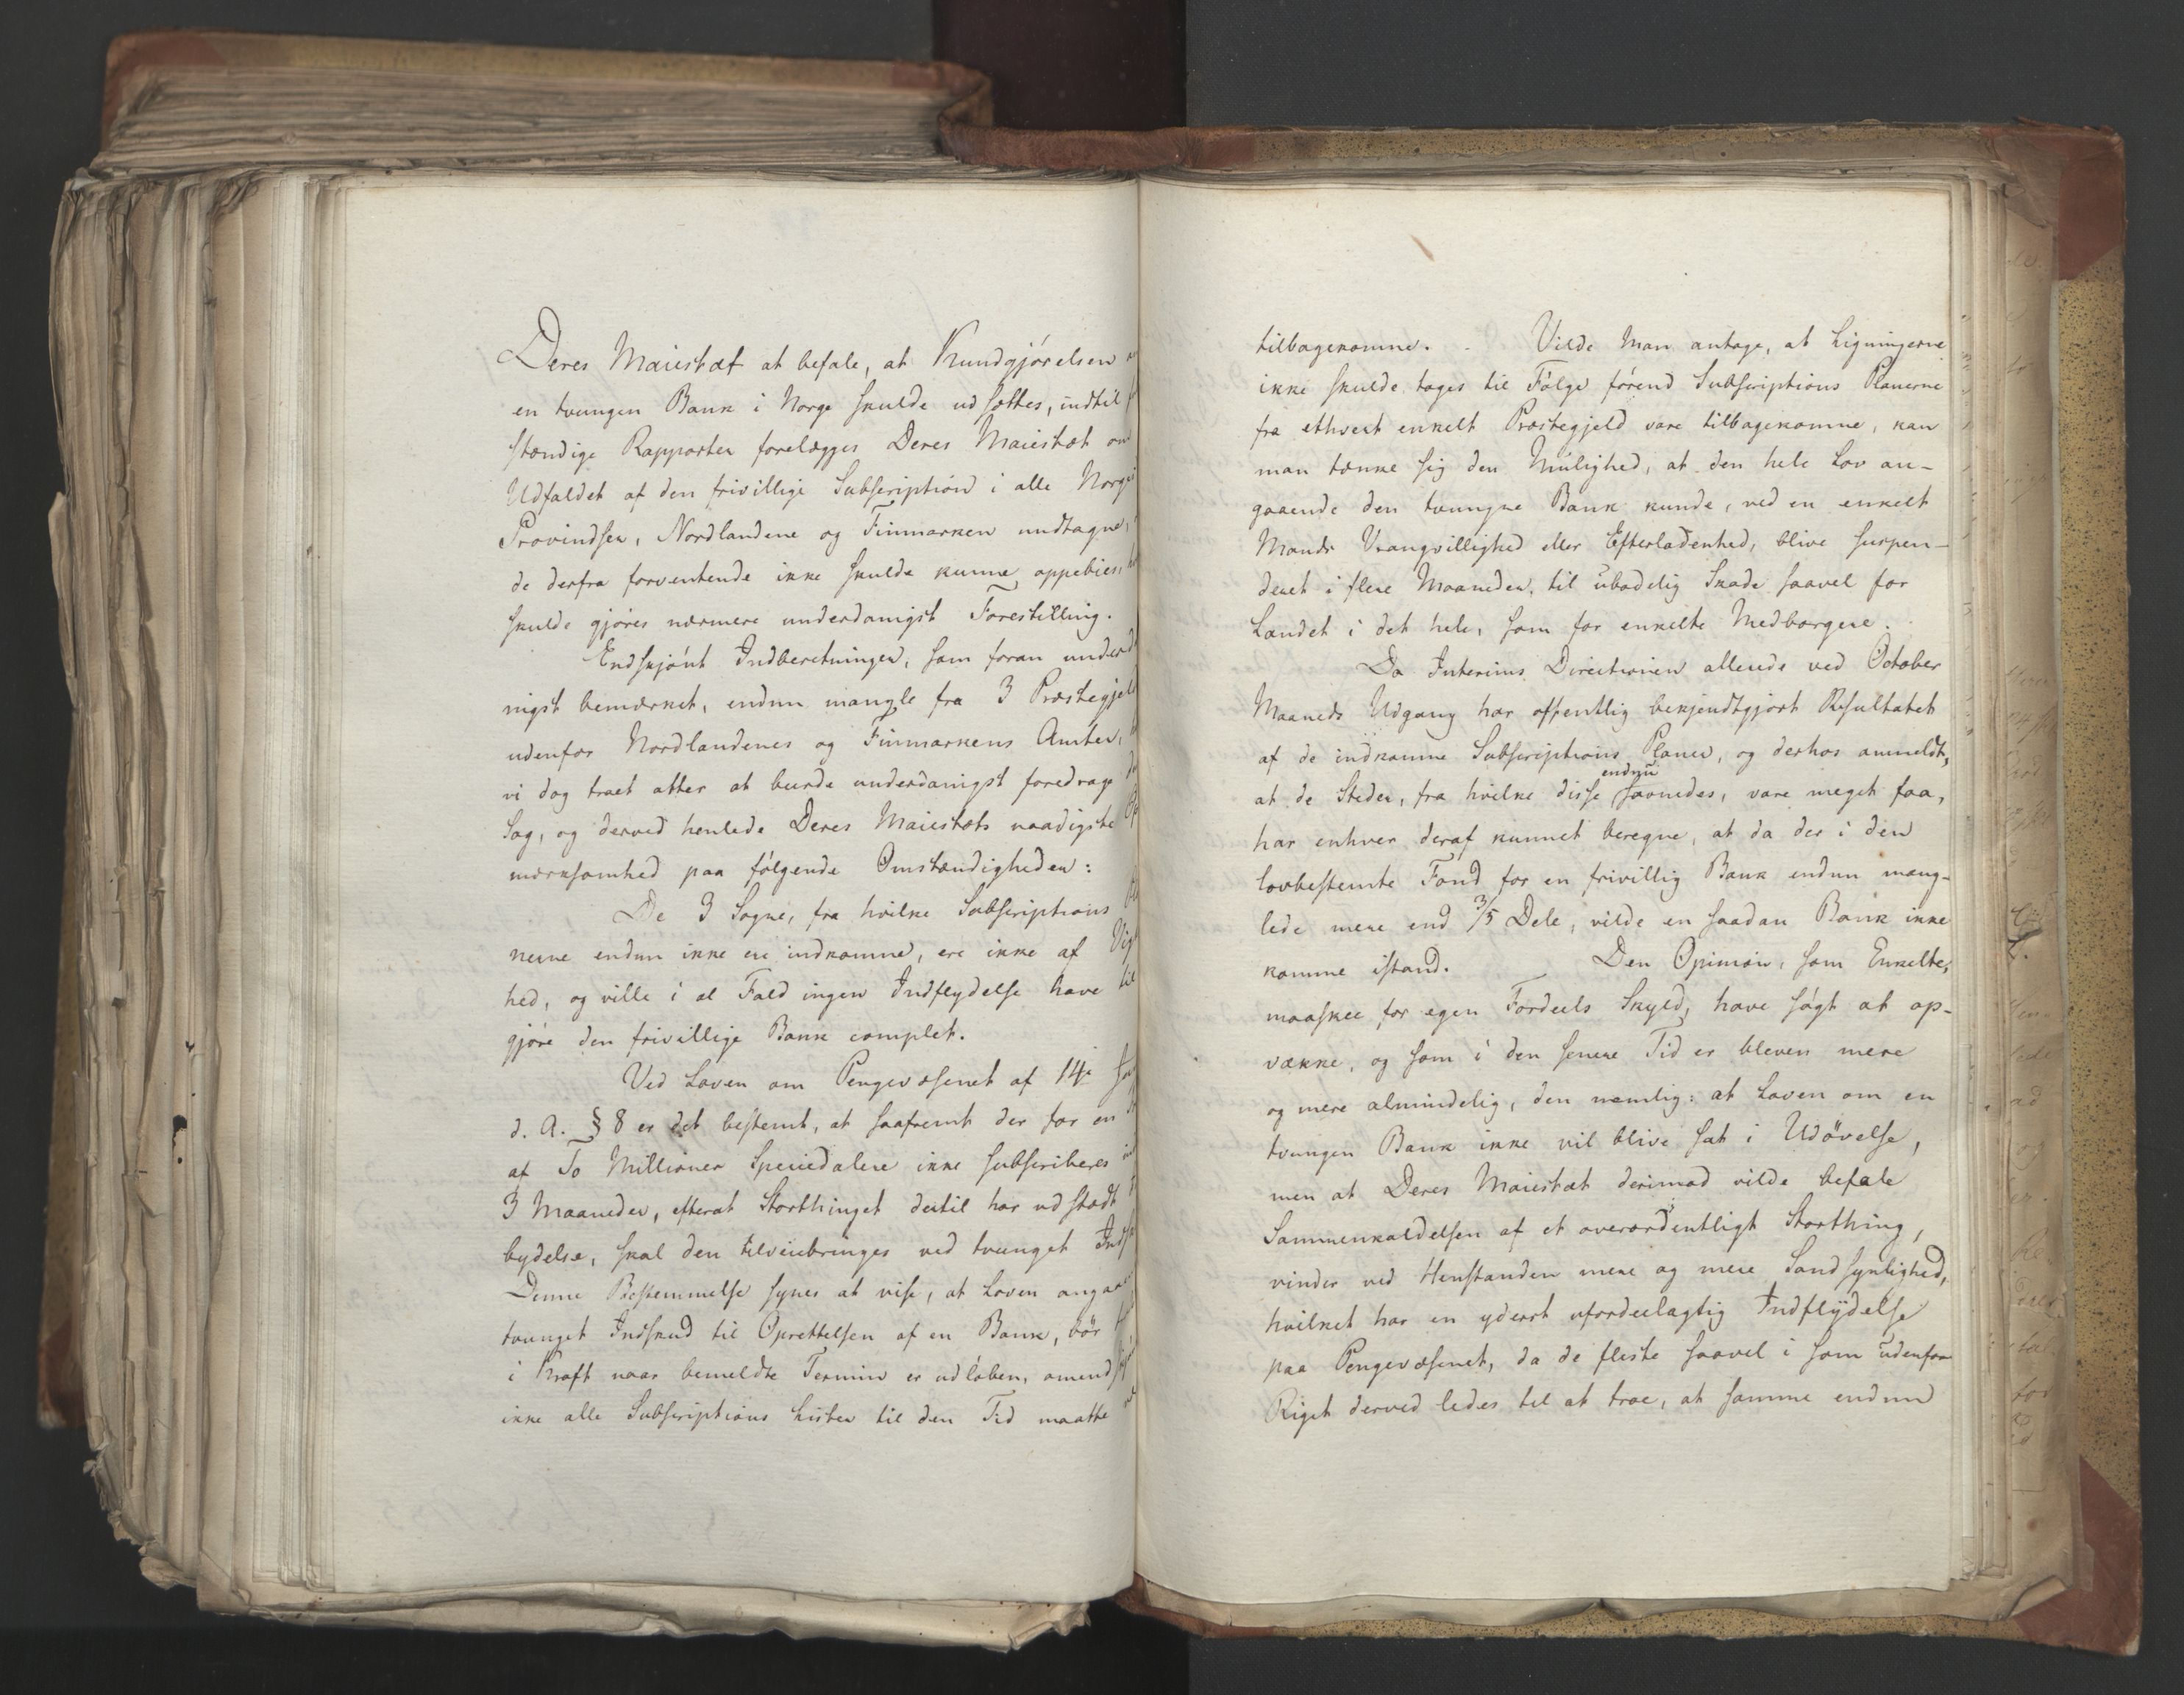 Deres Maiestæt at befale, at Kundgjørelsen
en tvungen Bank i Norge skulde udsættes, indtil
stændige Rapporter forelægges Deres Maiestæt om
Udfaldet af den frivillige Subscription i alle Norges
Provindser, Nordlandene og Finmarken undtagne,
de derfra forventende ikke skulde kunne oppebies,
skulde gjøres nærmere underdanigst Forestilling.
Endskjønt Indberetninger, som foran underda
nigst bemærket, endnu mangle fra 3 Præstegjeld
udenfor Nordlandenes og Finmarkens Amter,
vi dog troet atter at burde underdanigst foredrage
Sag, og derved henlede Deres Maiestæts naadigste Op
mærksomhed paa følgende Omstændigheder:
De 3 Sogne, fra hvilke Subscriptions
nerne endnu ikke ere indkomne, ere ikke af Vig
hed, og ville i al Fald ingen Indflydelse have til
gjøre den frivillige Bank complet.
Ved Loven om Pengevæsenet af 14de
d. A. § 8 er det bestemt, at saafremt der for en
af To Millioner Speciedalere ikke subscriberes
3 Maaneder, efterat Storthinget dertil har udstædt
bydelse, skal den tilveiebringes ved tvunget Indsk
Denne Bestemmelse synes at vise, at Loven angaae
tvunget Indskud til Oprettelsen af en Bank, bör
i Kraft naar bemeldte Termin er udløben, omendskjön
ikke alle Subscriptions Lister til den Tid maatte
tilbagekomne. Vilde man antage, at Ligningerne
ikke skulde tages til Følge førend Subscriptions Planerne
fra ethvert enkelt Præstegjeld vare tilbagekomne, kan
man tænke sig den Mulighed, at den hele Lov an-
gaaende den tvungne Bank kunde, ved en enkelt
Mands Vrangvillighed eller Efterladenhed, blive suspen-
deret i flere Maaneder, til ubodelig Skade saavel for
Landet i det hele, som for enkelte Medborgere.
Da Interims Directionen allerede ved October
Maaneds Udgang har offentlig bekjendtgjørt Resultatet
af de indkomne Subscriptions Planer, og derhos anmeldt,
endnu
at de Steder, fra hvilke disse savnedes, vare meget faa,
har enhver deraf kunnet beregne, at da der i den
lovbestemte Fond for en frivillig Bank endnu mang-
lede mere end 3/5 Dele, vilde en saadan Bank ikke
komme istand. Den Opinion, som Enkelte,
maaskee for egen Fordeels Skyld, have søgt at op-
vække, og som i den senere Tid er bleven mere
og mere almindelig, den nemlig: at Loven om en
tvungen Bank ikke vil blive sat i Udøvelse,
men at Deres Maiestæt derimod vilde befale
Sammenkaldelsen af et overordentligt Storthing,
vinder ved Henstanden mere og mere Sandsynlighed,
hvilket har en yderst ufordeelagtig Indflydelse
paa Pengevæsenet, da de fleste saavel i som udenfor
Riget derved ledes til at troe, at samme endnu